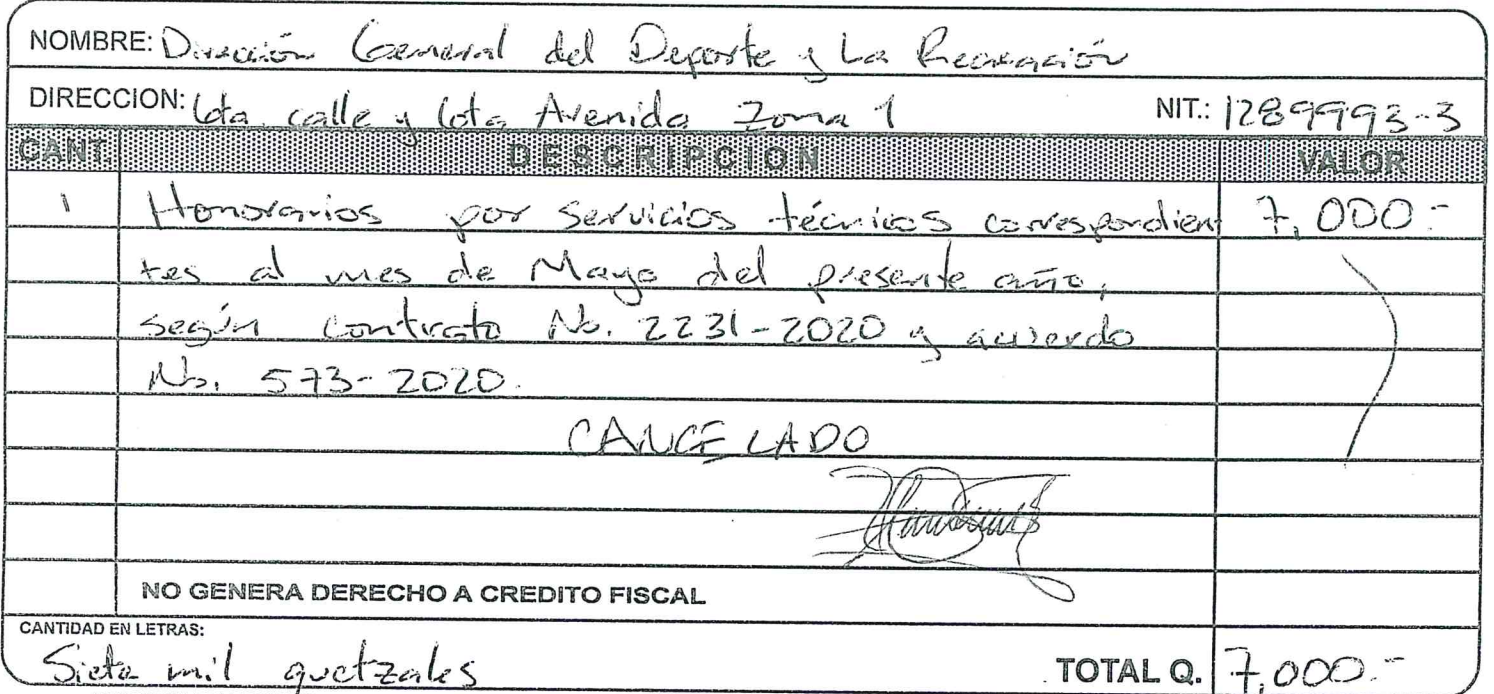 NOMBRE: Dirección General del Deporte y La Recreación
DIRECCION: 6ta. calle y 6ta Avenida Zona 1 NIT.: 1289993-3
CANT. DESCRIPCION VALOR
1 Honorarios por servicios técnicos correspondien 7,000.-
tes al mes de Mayo del presente año,
según contrato No. 2231-2020 y acuerdo
No. 573-2020.
CANCELADO
NO GENERA DERECHO A CREDITO FISCAL
CANTIDAD EN LETRAS:
Siete mil quetzales TOTAL Q. 7,000.-